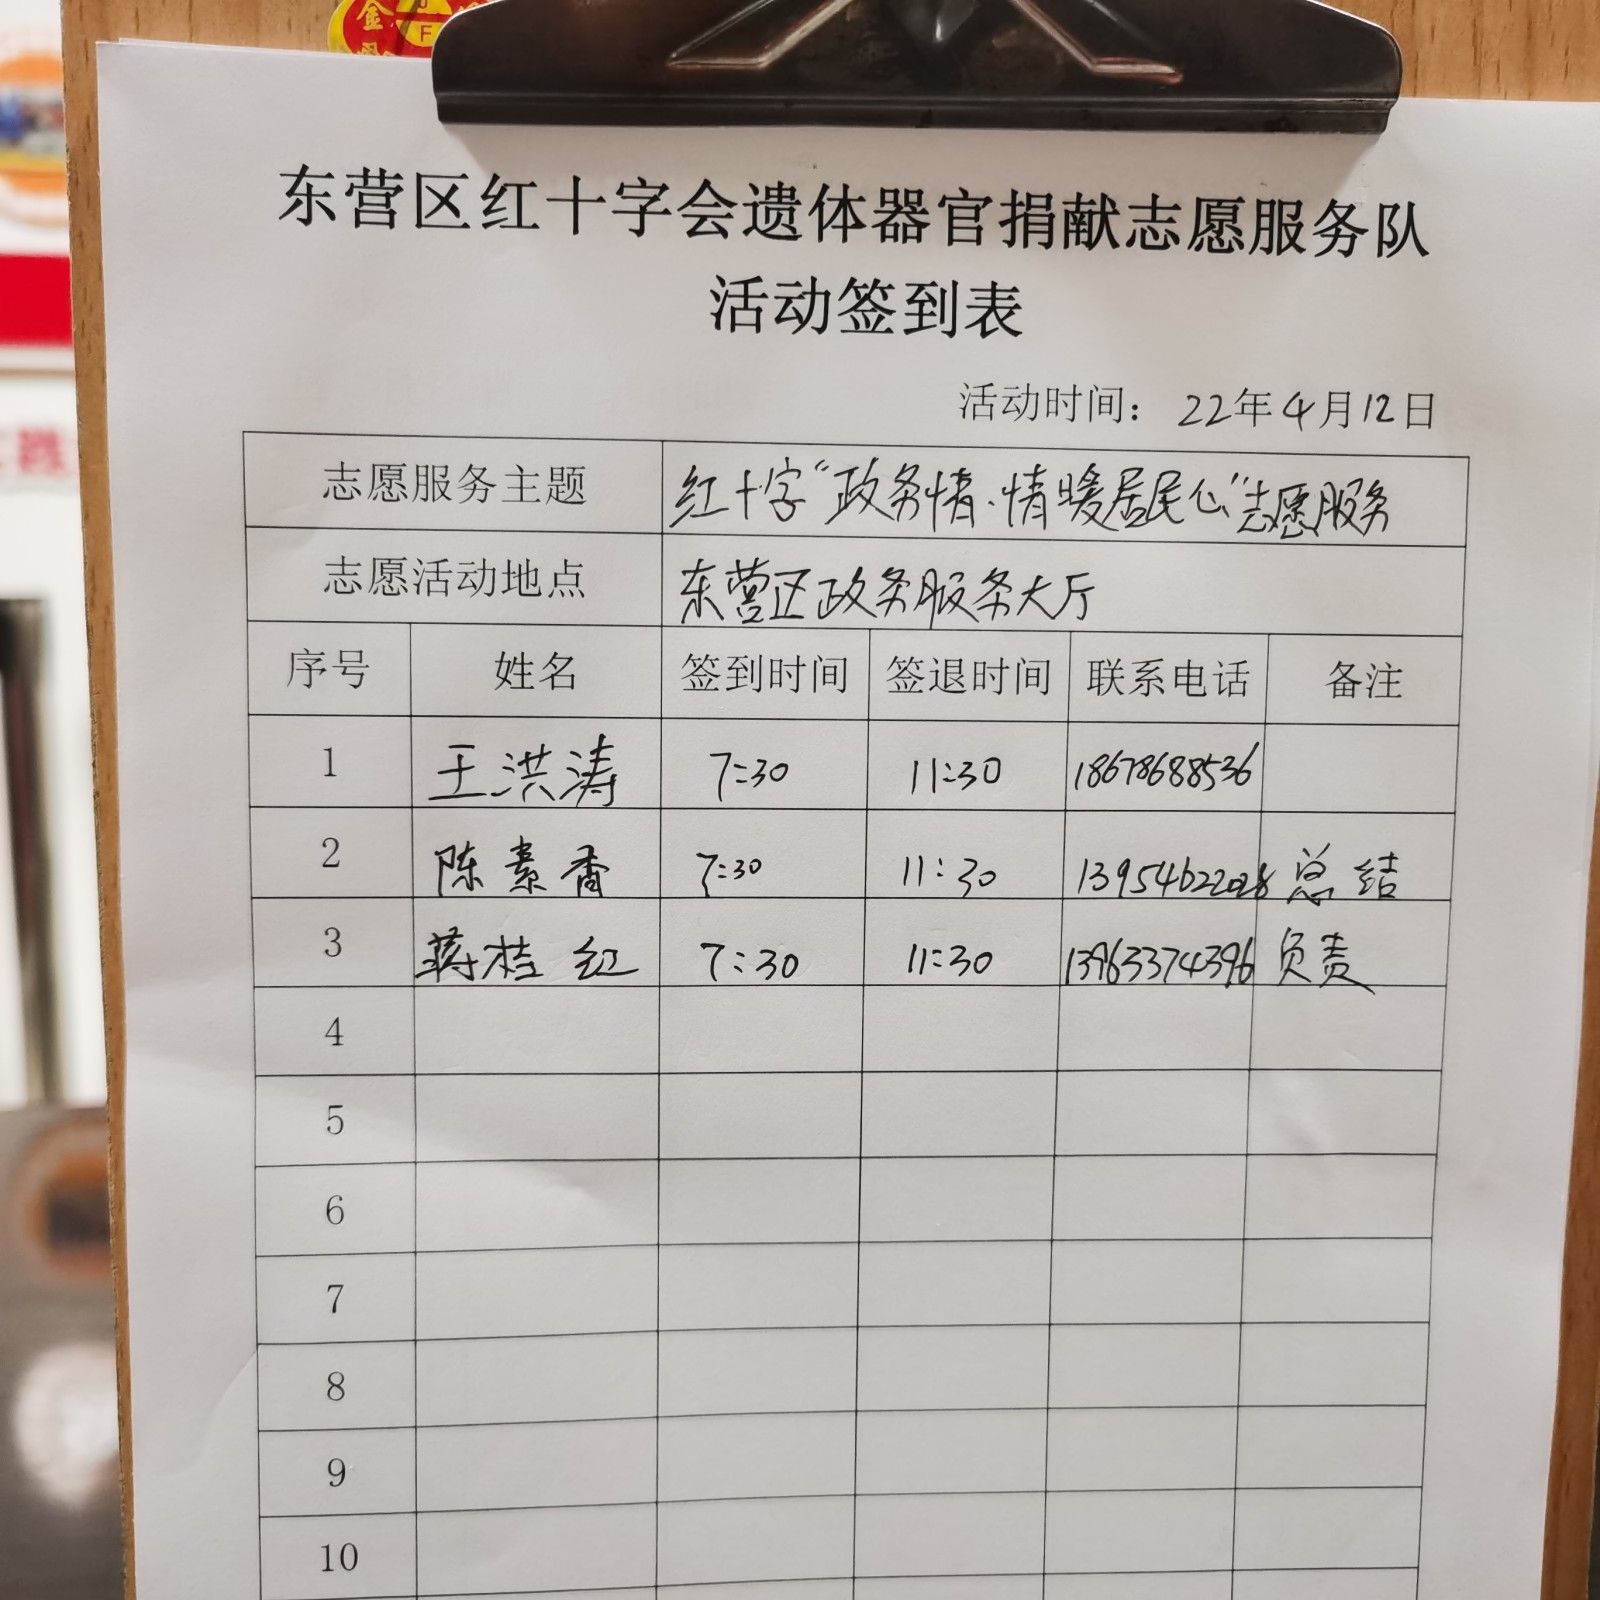 金
F
东营区红十字会遗体器官捐献志愿服务队
活动签到表
活动时间： 22年4月12日
志愿服务主题 红十字“政务情·情暖居民心”志愿服务
志愿活动地点 东营区政务服务大厅
序号 姓名 签到时间 签退时间 联系电话 备注
1 王洪涛 7:30 11:30 18678688536
2 陈素香 7:30 11:30 13954622028 总结
3 蒋桂红 7:30 11:30 13963374396 负责
4
5
6
7
8
9
10